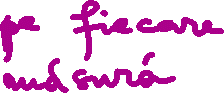 pe fiecare
măsură